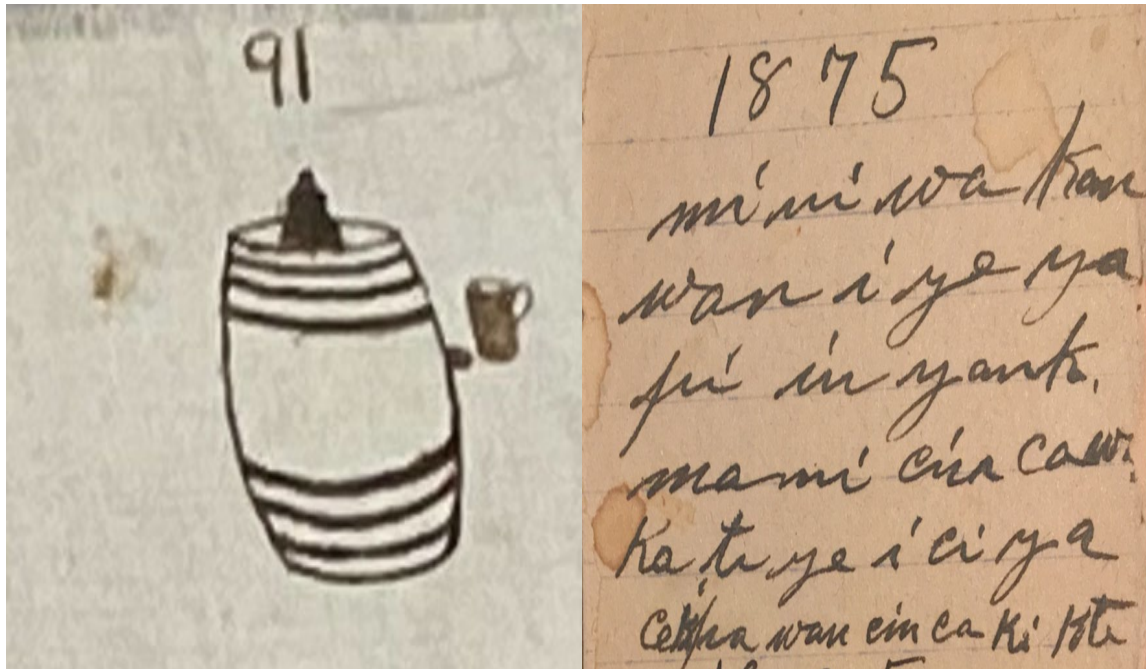 91
1875
mi ni wa kan
wan i ye ya
pi in yank.
ma mi cin ca w.
Ka te ye i ci ya
wan cin ca Ki Kte